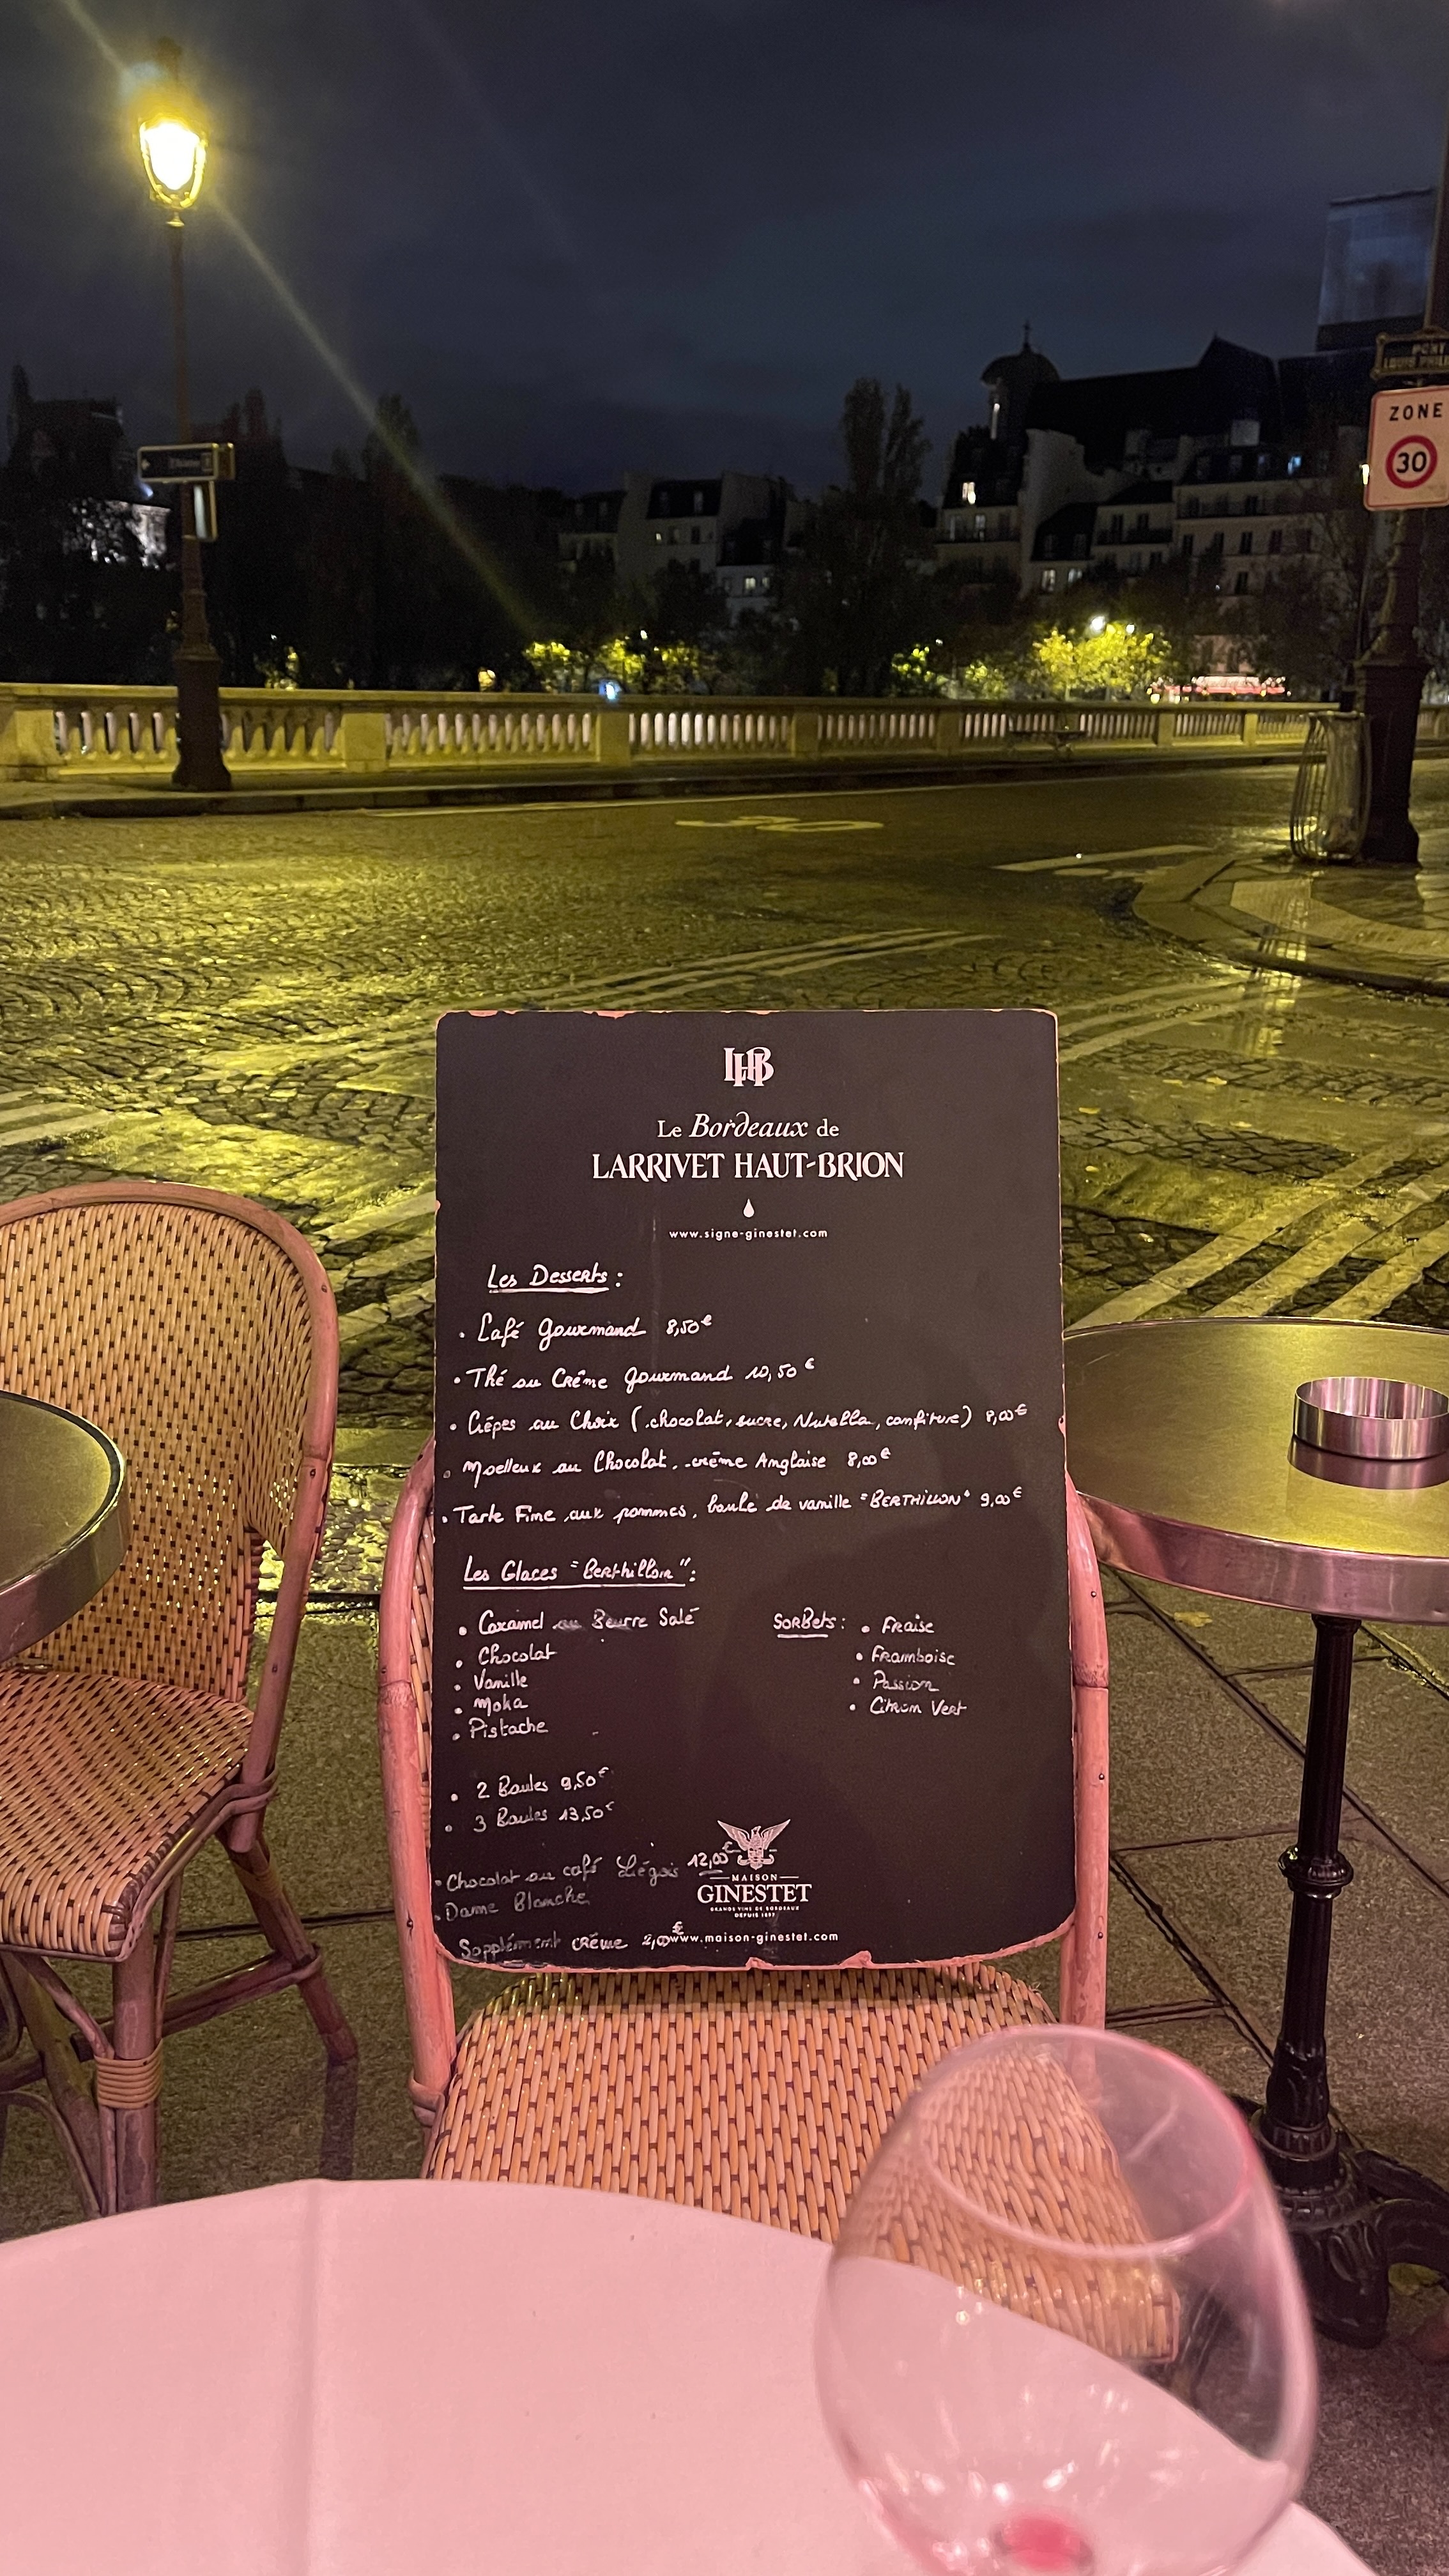 PONT
LOUIS PHILI
ZONE
30
LHB
Le Bordeaux de
LARRIVET HAUT-BRION
www.signe-ginestet.com
Les Desserts :
• Café Gourmand 8,50€
• Thé ou Crême gourmand 10,50€
• Crêpes au Choix (chocolat, sucre, Nutella, confiture) 8,00€
• Moelleux au Chocolat, crême Anglaise 8,00€
• Tarte Fine aux pommes, boule de vanille "BERTHILLON" 9,00€
Les Glaces "Berthillon" :
• Caramel au Beurre Salé
• Chocolat
• Vanille
• Moka
• Pistache
Sorbets : • Fraise
• Framboise
• Passion
• Citron Vert
• 2 Boules 9,50€
• 3 Boules 13,50€
• Chocolat ou café Liégois 12,00€
• Dame Blanche
Supplément crême 2,00€
MAISON
GINESTET
GRANDS VINS DE BORDEAUX
DEPUIS 1897
www.maison-ginestet.com